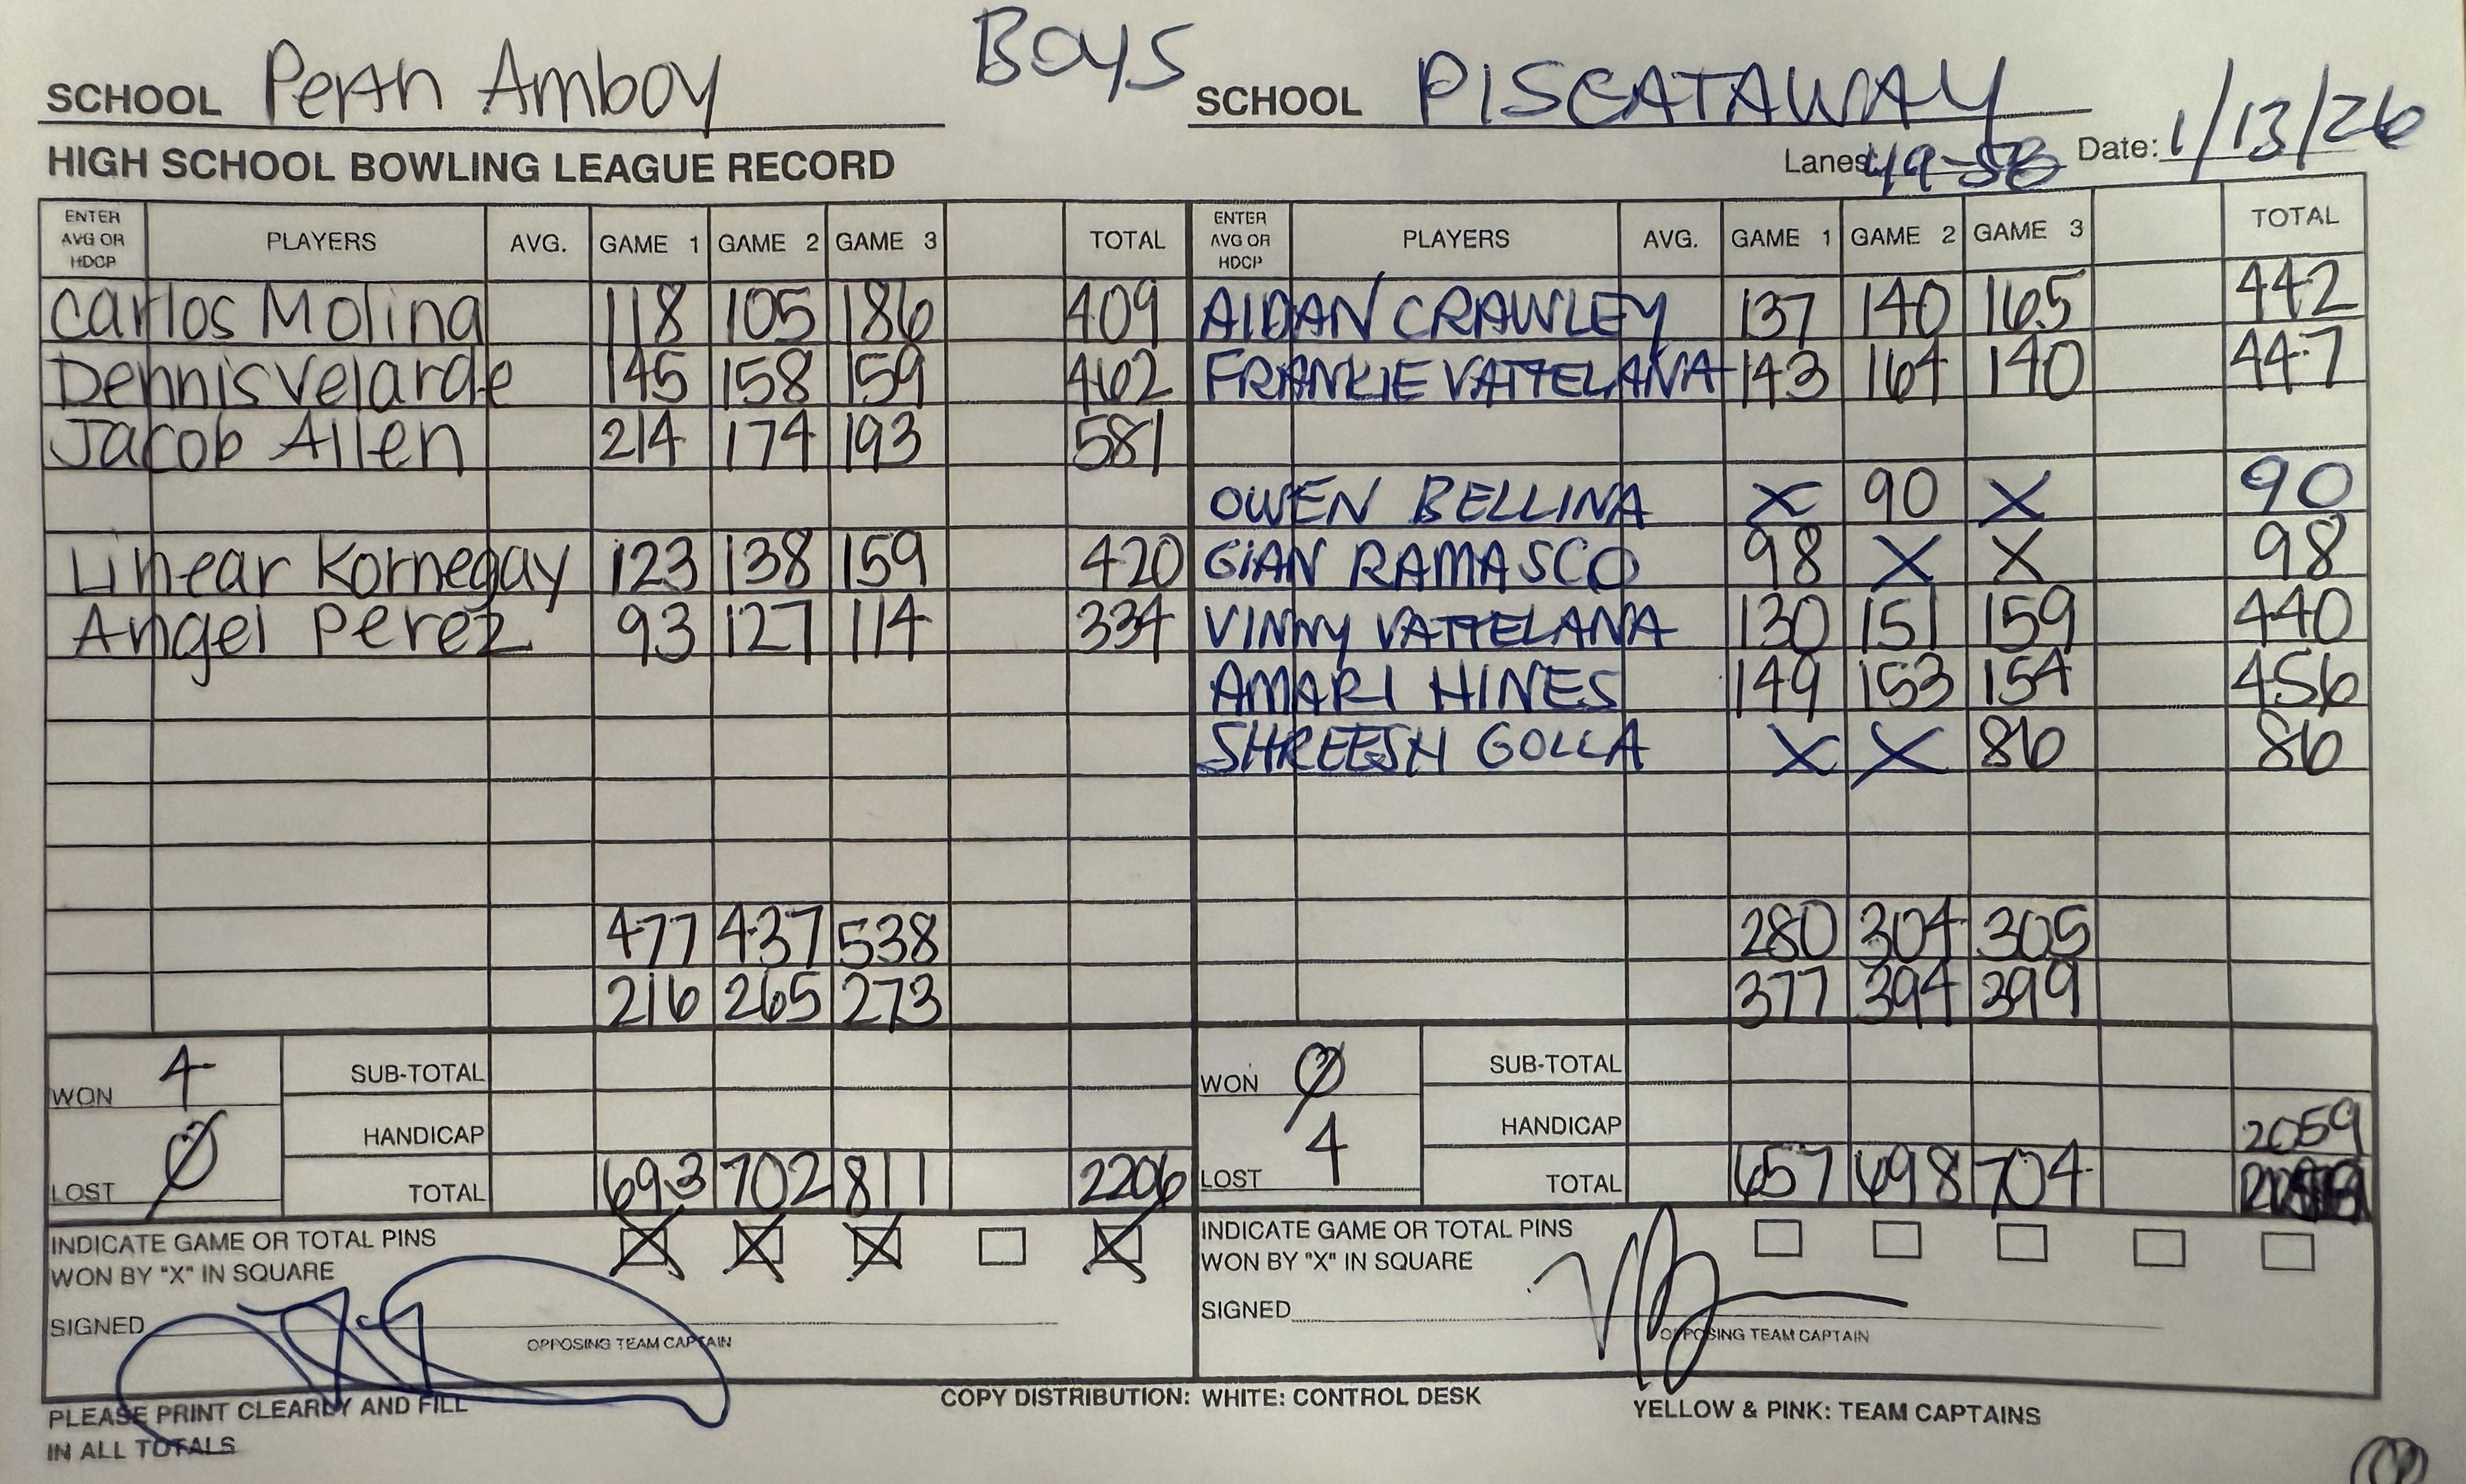 Boys
SCHOOL Perth Amboy SCHOOL PISCATAWAY
HIGH SCHOOL BOWLING LEAGUE RECORD Lanes: Date: 1/13/26
ENTER AVG OR HDCP PLAYERS AVG. GAME 1 GAME 2 GAME 3 TOTAL ENTER AVG OR HDCP PLAYERS AVG. GAME 1 GAME 2 GAME 3 TOTAL
Carlos Molina 118 105 186 409 AIDAN CRAWLEY 137 140 165 442
Dennis Velarde 145 158 159 462 FRANKIE VATTELANA 143 164 140 447
Jacob Allen 214 174 193 581
OWEN BELLINA X 90 X 90
Linear Kornegay 123 138 159 420 GIAN RAMASCO 98 X X 98
Angel Perez 93 127 114 334 VINNY VATTELANA 130 151 159 440
AMARI HINES 149 153 154 456
SHREESH GOLLA X X 86 86
477 437 538 280 304 305
216 265 273 377 394 399
WON 4 SUB-TOTAL WON 0 SUB-TOTAL
HANDICAP HANDICAP 2059
LOST 0 TOTAL 693 702 811 2206 LOST 4 TOTAL 657 698 704
INDICATE GAME OR TOTAL PINS X X X X INDICATE GAME OR TOTAL PINS
WON BY "X" IN SQUARE WON BY "X" IN SQUARE
SIGNED SIGNED
OPPOSING TEAM CAPTAIN OPPOSING TEAM CAPTAIN
PLEASE PRINT CLEARLY AND FILL COPY DISTRIBUTION: WHITE: CONTROL DESK YELLOW & PINK: TEAM CAPTAINS
IN ALL TOTALS